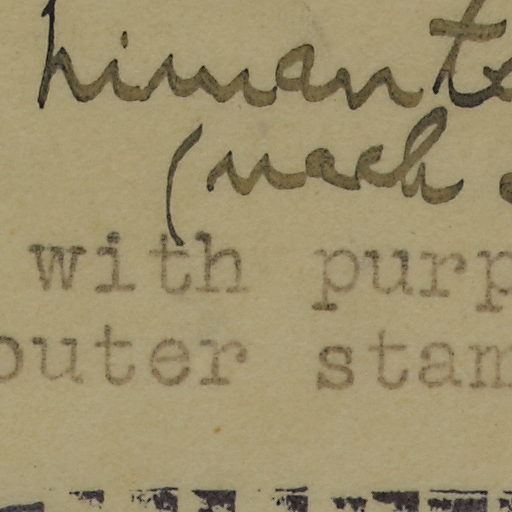 himante
(nach
with purp
outer stam